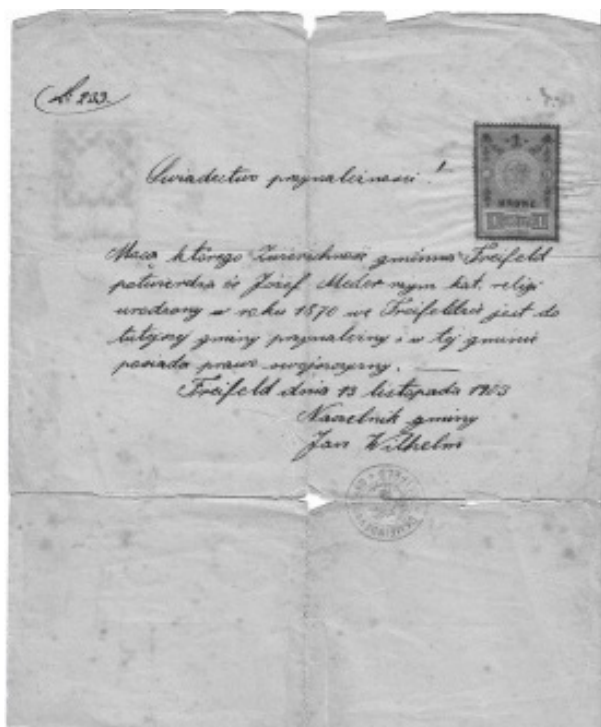 L: 233.
Świadectwo przynależności!
1
KRONE
1 1
Mocą którego Zwierzchność gminna Freifeld
potwierdza iż Józef Meder rzym. kat. religi
urodzony w roku 1870 we Freifeldzie jest do
tutejszy gminy przynależny i w tej gminie
posiada prawo swojszczyzny.
Freifeld dnia 13 listopada 1903
Naczelnik gminy
Jan Wilhelm